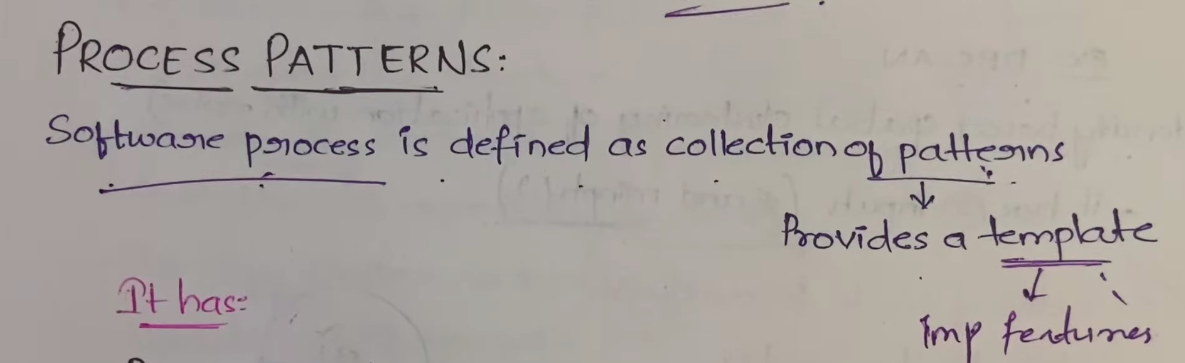 PROCESS PATTERNS:
Software process is defined as collection of patterns
↓
Provides a template
↓
It has:
Imp features